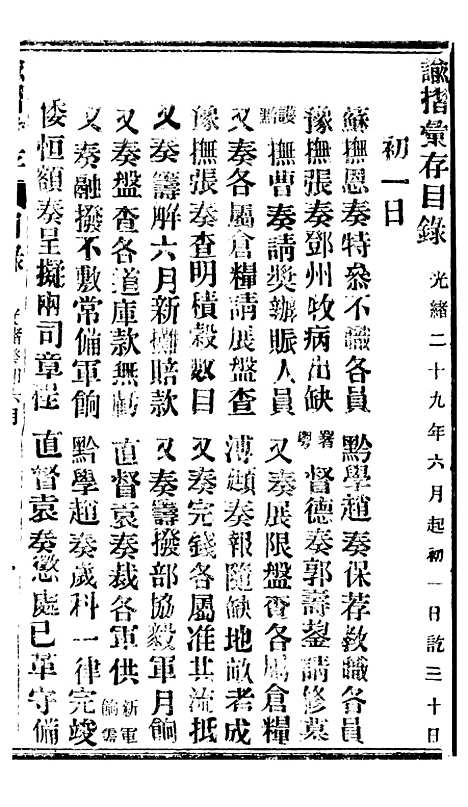 諭摺彙存目錄 光緒二十九年六月起初一日訖三十日
初一日
蘇撫恩奏特參不職各員 黔學趙奏保荐教職各員
豫撫張奏鄧州牧病出缺 署粵督德奏郭壽鋆請修墓
護黔撫曹奏請獎辦賑人員 又奏展限盤查各屬倉糧
又奏各屬倉糧請展盤查 溥頲奏報隨缺地畝者成
豫撫張奏查明積穀數目 又奏完錢各屬准其流抵
又奏籌解六月新攤賠款 又奏籌撥部協毅軍月餉
又奏盤查各道庫款無虧 直督袁奏裁各軍供新軍餉需
又奏融撥不敷常備軍餉 黔學趙奏歲科一律完竣
倭恒額奏呈擬兩司章程 直督袁奏懲處已革守備